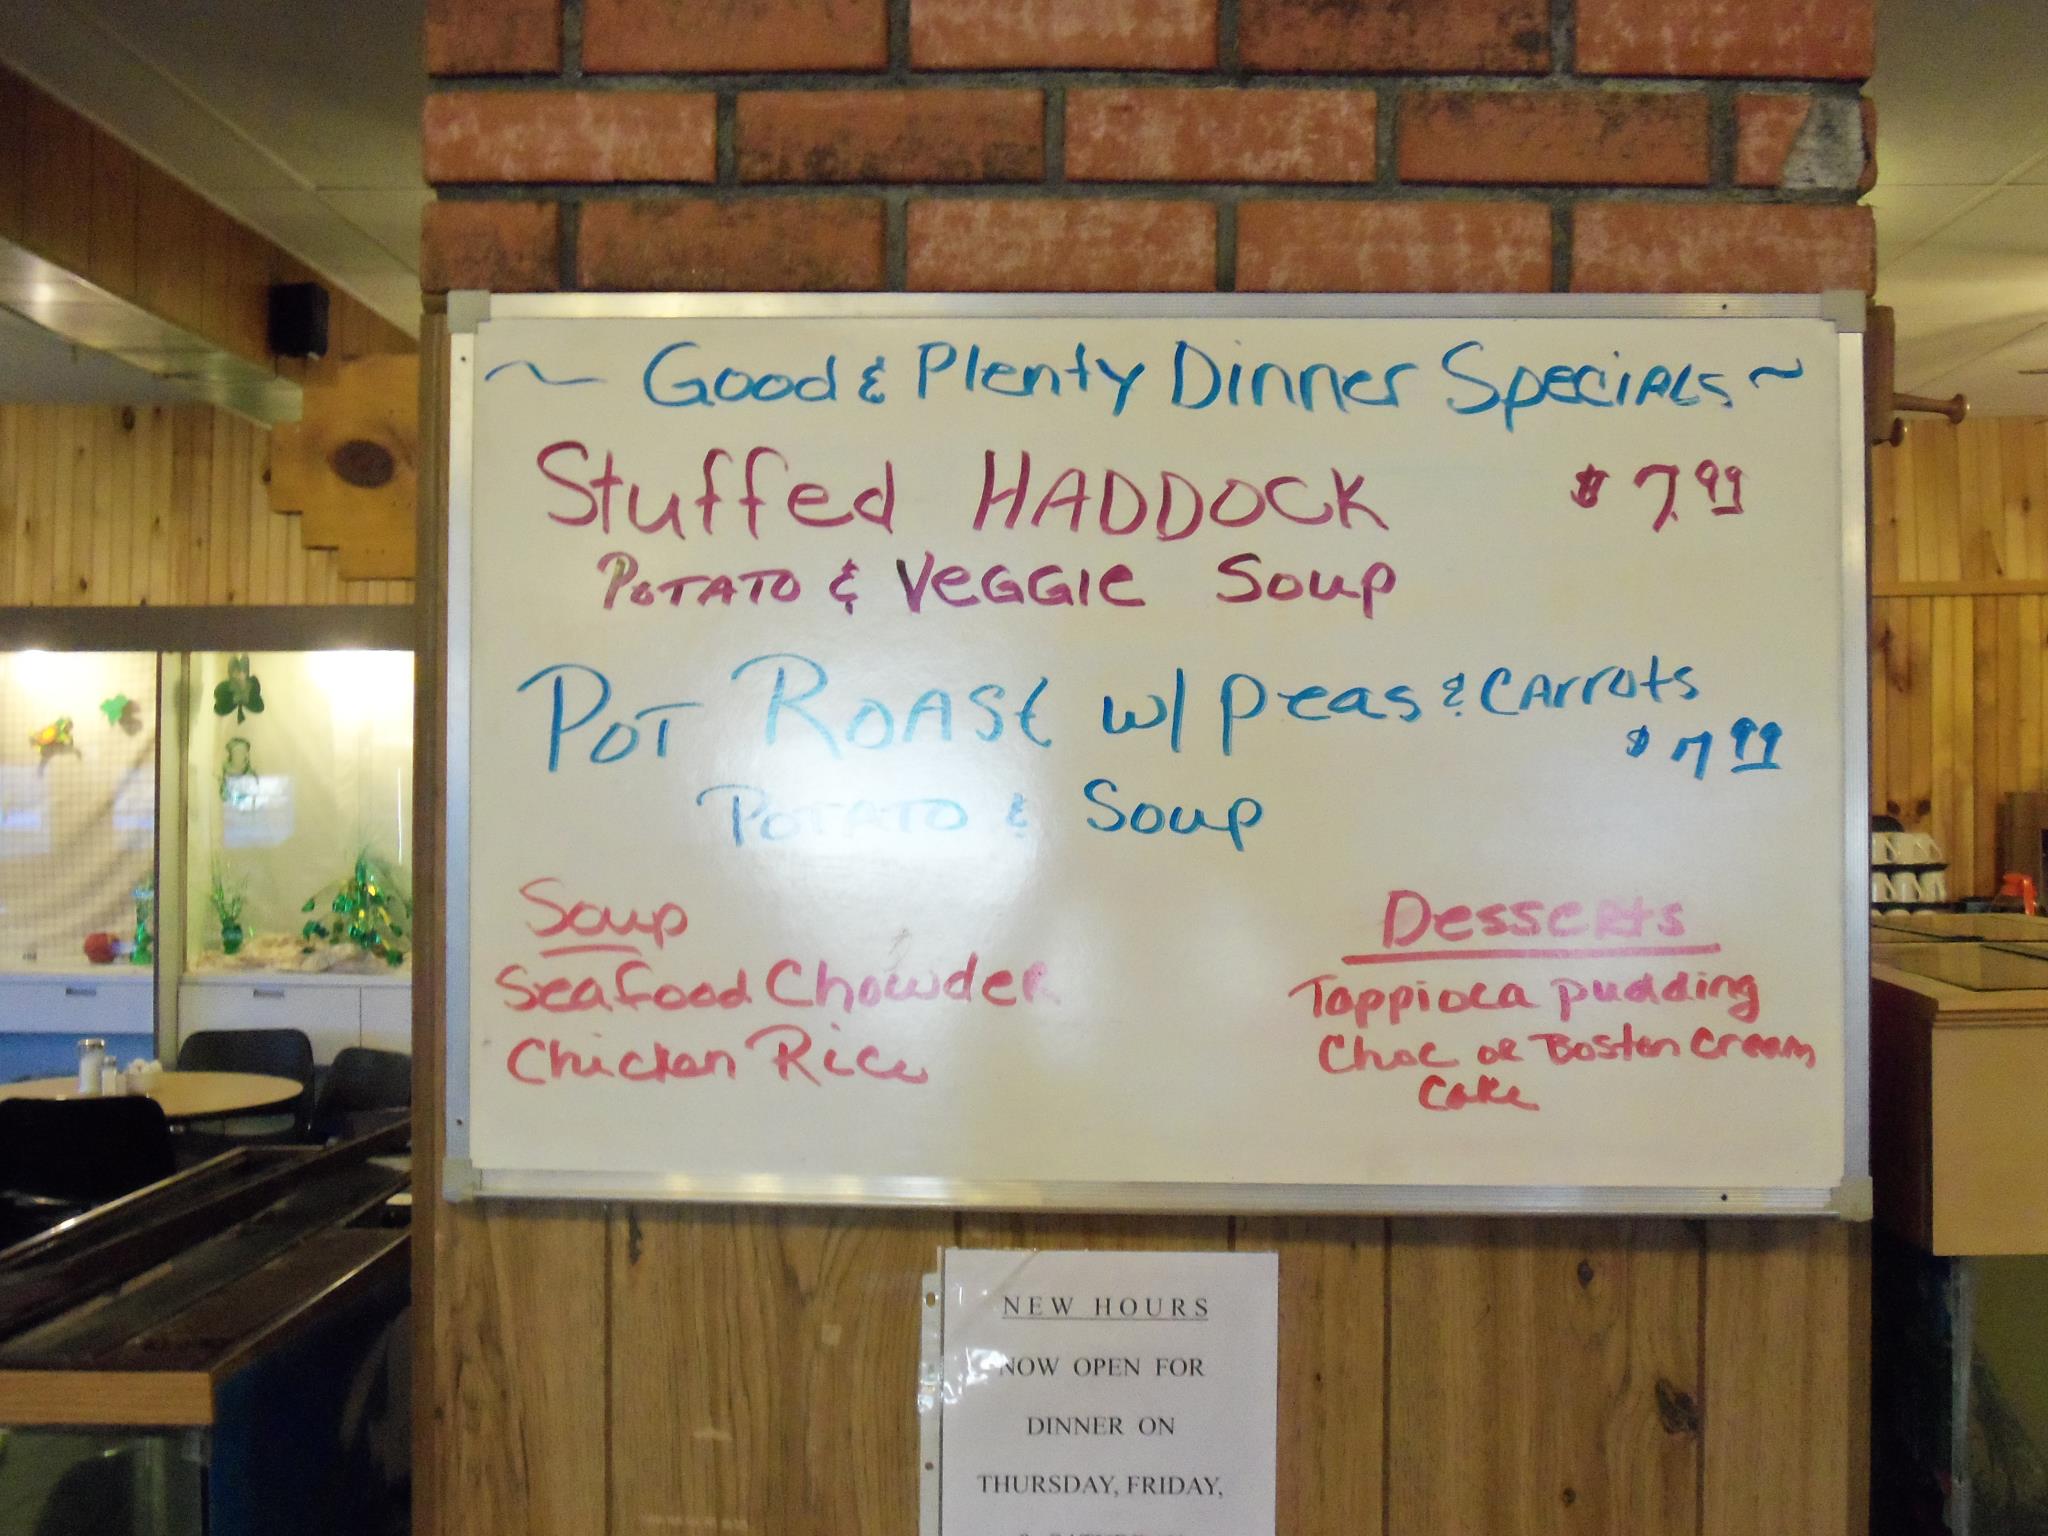 ~ Good & Plenty Dinner Specials ~
Stuffed HADDOCK $7.99
POTATO & VEGGIE Soup
POT ROAST w/ Peas & CARROTS
$7.99
POTATO & Soup
Soup
Seafood Chowder
Chicken Rice
Desserts
Tappioca pudding
Choc or Boston Cream
Cake
NEW HOURS
NOW OPEN FOR
DINNER ON
THURSDAY, FRIDAY,